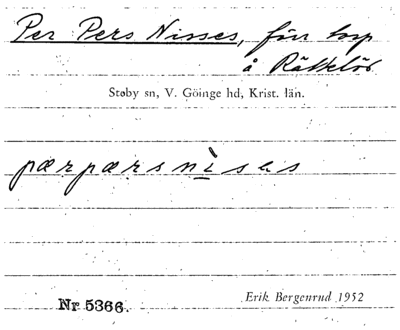 Per Pers Nisses, förr torp
å Röttelöv
Støby sn, V. Göinge hd, Krist. län.
pærpærsnìsəs
Nr 5366.
Erik Bergenrud 1952